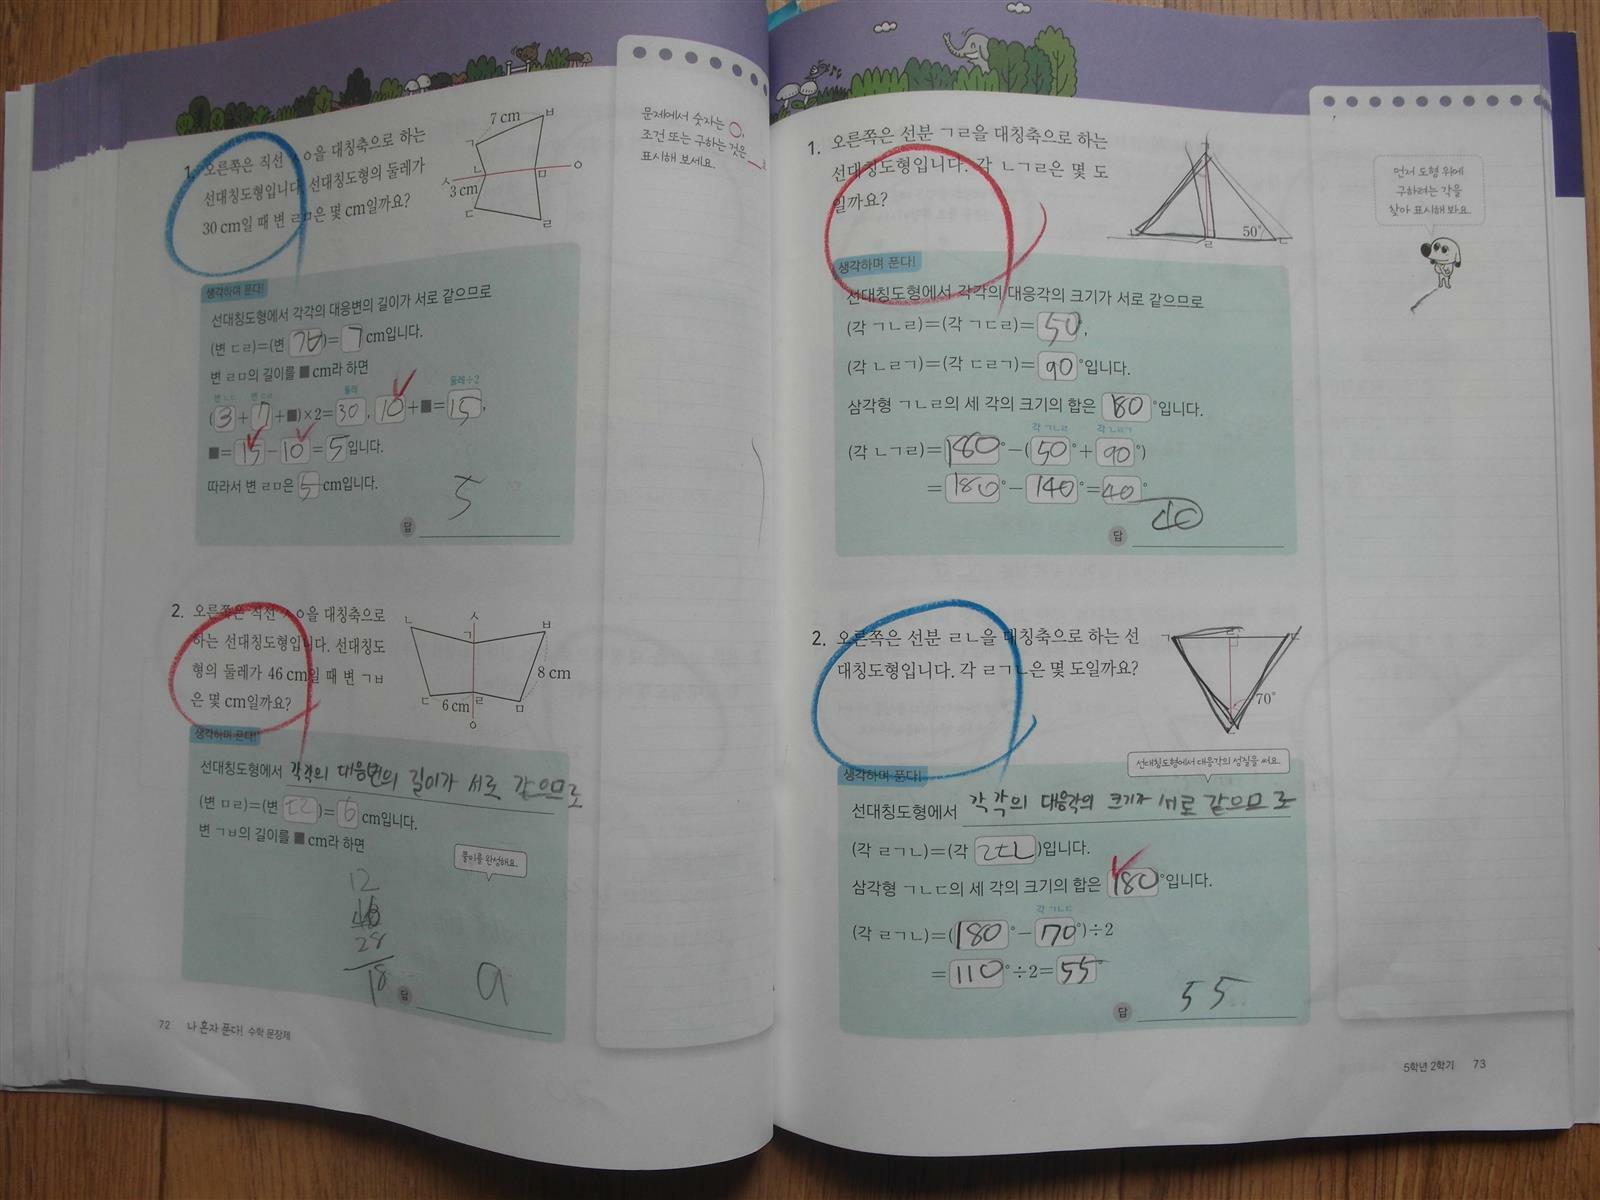 1. 오른쪽은 직선 ㅅㅇ을 대칭축으로 하는
선대칭도형입니다. 선대칭도형의 둘레가
30 cm일 때 변 ㄹㅁ은 몇 cm일까요?
7 cm
ㅂ
ㄱ
ㄴ
ㅁ
ㅇ
ㅅ
3 cm
ㄷ
ㄹ
문제에서 숫자는 ○,
조건 또는 구하는 것은 __로
표시해 보세요.
생각하며 푼다!
선대칭도형에서 각각의 대응변의 길이가 서로 같으므로
(변 ㄷㄹ)=(변 ㄱㅂ)=7 cm입니다.
변 ㄹㅁ의 길이를 ■ cm라 하면
변 ㄴㄷ 변 ㄷㄹ 둘레 둘레÷2
(3+7+■)×2=30, 10+■=15,
■=15-10=5입니다.
따라서 변 ㄹㅁ은 5 cm입니다.
5
답
2. 오른쪽은 직선 ㅅㅇ을 대칭축으로
하는 선대칭도형입니다. 선대칭도
형의 둘레가 46 cm일 때 변 ㄱㅂ
은 몇 cm일까요?
ㅅ
ㄴ
ㄱ
ㅂ
8 cm
ㄷ
6 cm
ㄹ
ㅁ
ㅇ
생각하며 푼다!
선대칭도형에서 각각의 대응변의 길이가 서로 같으므로
(변 ㅁㄹ)=(변 ㄷㄹ)=6 cm입니다.
변 ㄱㅂ의 길이를 ■ cm라 하면
풀이를 완성해요.
12
28
18
9
답
72 나 혼자 푼다! 수학 문장제
1. 오른쪽은 선분 ㄱㄹ을 대칭축으로 하는
선대칭도형입니다. 각 ㄴㄱㄹ은 몇 도
일까요?
ㄹ
50°
ㄷ
먼저 도형 위에
구하려는 각을
찾아 표시해 봐요.
생각하며 푼다!
선대칭도형에서 각각의 대응각의 크기가 서로 같으므로
(각 ㄱㄴㄹ)=(각 ㄱㄷㄹ)=50°,
(각 ㄴㄹㄱ)=(각 ㄷㄹㄱ)=90°입니다.
삼각형 ㄱㄴㄹ의 세 각의 크기의 합은 180°입니다.
각 ㄱㄴㄹ 각 ㄴㄹㄱ
(각 ㄴㄱㄹ)=180°-(50°+90°)
=180°-140°=40°
40
답
2. 오른쪽은 선분 ㄹㄴ을 대칭축으로 하는 선
대칭도형입니다. 각 ㄹㄱㄴ은 몇 도일까요?
ㄱ
ㄹ
ㄷ
70°
ㄴ
선대칭도형에서 대응각의 성질을 써요.
생각하며 푼다!
선대칭도형에서 각각의 대응각의 크기가 서로 같으므로
(각 ㄹㄱㄴ)=(각 ㄹㄷㄴ)입니다.
삼각형 ㄱㄴㄷ의 세 각의 크기의 합은 180°입니다.
각 ㄱㄴㄷ
(각 ㄹㄱㄴ)=(180°-70°)÷2
=110°÷2=55°
55
답
5학년 2학기 73